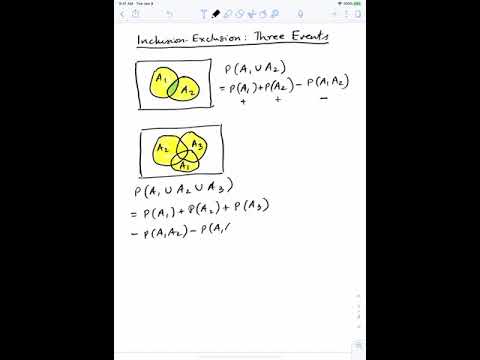 9:41 AM Tue Jan 9
100%
Inclusion-Exclusion: Three Events
A₁ A₂
P(A₁ ∪ A₂)
= P(A₁) + P(A₂) − P(A₁A₂)
+ + −
A₂ A₃
A₁
P(A₁ ∪ A₂ ∪ A₃)
= P(A₁) + P(A₂) + P(A₃)
− P(A₁A₂) − P(A₁(